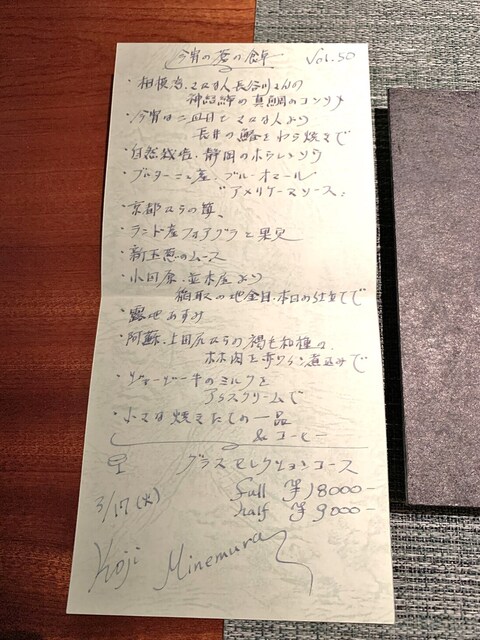 今宵の蒼の食卓 Vol.50
・相模湾、さかな人長谷川さんの
神経締の真鯛のコンフィ
・今宵は二皿目でさかな人より
長井の鰆をわら焼きで
・自然栽培、静岡のホウレンソウ
・ブルターニュ産、ブルーオマール
アメリケーヌソース、
・京都からの筍、
・ランド産フォアグラと果実
・新玉葱のムース
・小田原、並木屋より
稲取の地金目、本日の仕立てで
・露地あすみ
・阿蘇、上田尻からの褐毛和種の、
ホホ肉を赤ワイン煮込みで
・ジャージーキのミルクを
アイスクリームで
・小さな焼きたての一品
& コーヒー
グラスセレクションコース
3/17(火) full ¥18000-
half ¥9000-
Koji Minemura